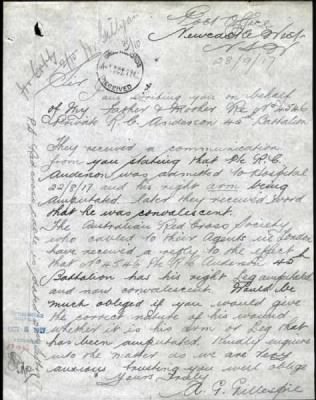 Post Office
Newcastle West
N.S.W
28/9/17
Sir
I am writing you on behalf
of my Father & Mother Re No 4546
Private R. C. Anderson 45th Battalion
They received a communication
from you stating that Pte R. C.
Anderson was admitted to Hospital
22/8/17 and his right arm being
amputated later they received word
that he was convalescent.
The Australian Red Cross Society
who cabled to their Agents in London
have received a reply to the effect
that No 4546 Pte R. C. Anderson 45th
Battalion has his right Leg amputated
and now convalescent. Would be
much obliged if you would give
the correct nature of his wound
whether it is his arm or Leg that
has been amputated. Kindly enquire
into the matter as we are very
anxious trusting you will oblige
Yours Truly
A. G. Gillespie
RECEIVED